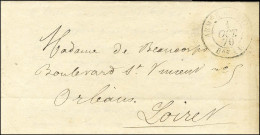 1
OCT
70
Madame de Beaucorps
Boulevard St Vincent 75
Orléans
Loiret